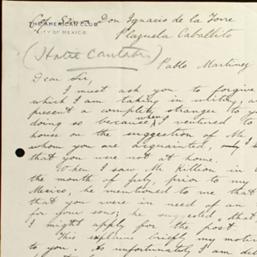 THE AMERICAN CLUB
CITY OF MEXICO.
Sr Don Ignacio de la Torre
Plazuela Caballito
(Hotel Cantabro)
Pablo Martinez
Dear Sir,
I must ask you to forgive
which I am taking in writing, a
present a complete stranger to yo
doing so because when I ventured to
house on the suggestion of Mr
whom you are acquainted, only
that you were not at home.
When I saw Mr Killian in
the month of July, prior to my
Mexico, he mentioned to me that
that you were in need of an
for your sons; he suggested that
I might apply for the post
This explains my motive
to you. As unfortunately I am